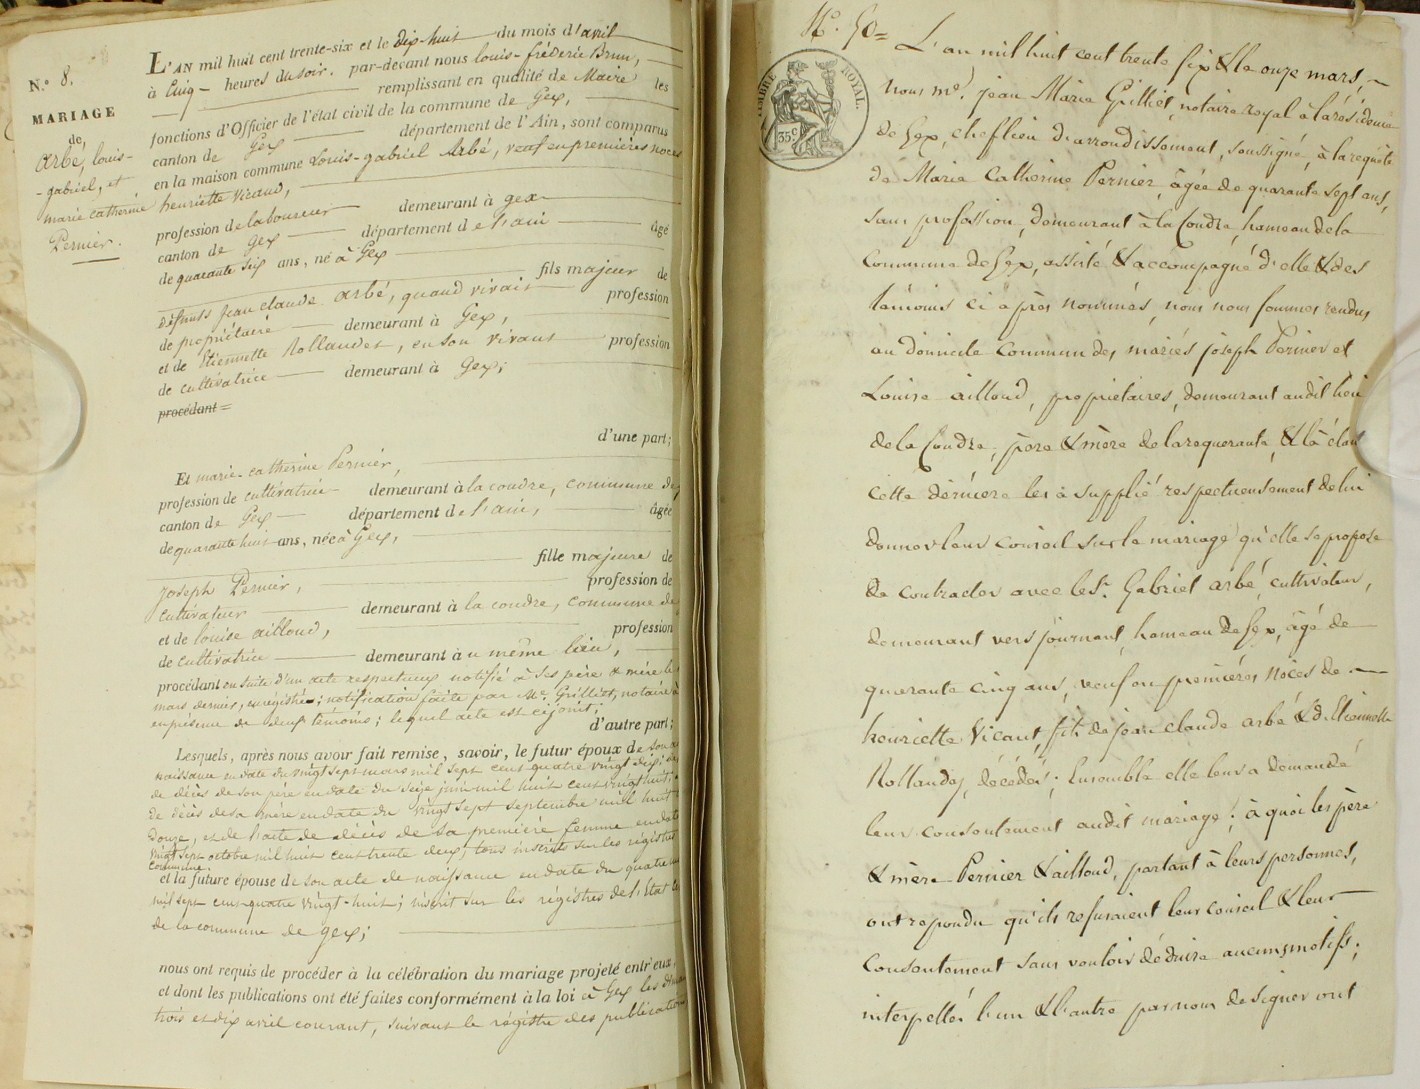 N.º 8.
MARIAGE
de
Arbé, louis-
-gabriel, et
marie catherine
Pernier.
L'AN mil huit cent trente-six et le dix-huit du mois d'avril
à Cinq heures du soir. par-devant nous louis-fréderic Brun,
remplissant en qualité de Maire les
fonctions d'Officier de l'état civil de la commune de Gex,
canton de Gex département de l'Ain, sont comparus
en la maison commune Louis-gabriel Arbé, veuf en premières noces
henriette Vicaud,
profession de laboureur demeurant à gex
canton de Gex département de l'ain âgé
de quarante six ans, né à Gex
fils majeur de
défunts Jean claude Arbé, quand vivait profession
de propriétaire demeurant à Gex,
et de Etiennette Rollandet, en son vivant profession
de cultivatrice demeurant à Gex;
procédant =
d'une part;
Et marie-catherine Pernier,
profession de cultivatrice demeurant à la coudre, commune de
canton de Gex département de l'ain, âgée
de quarante huit ans, née à Gex,
fille majeure de
Joseph Pernier, profession de
cultivateur demeurant à la coudre, commune de
et de louise ailloud, profession
de cultivatrice demeurant au même lieu,
procédant en suite d'un acte respectueux notifié à ses père & mère le
mars dernier, enregistré; notification faite par Me. Grilliet, notaire à
en présence de deux témoins; lequel acte est cijoint;
d'autre part;
Lesquels, après nous avoir fait remise, savoir, le futur époux de son
naissance en date du vingt sept mars mil sept cent quatre vingt dix;
de décès de son père en date du seize juin mil huit cent vingt huit;
de décès de sa mère en date du vingt sept septembre mil huit
douze, et de l'acte de décès de sa première femme en date
vingt sept octobre mil huit cent trente deux, tous inscrits sur les régistres
commune.
et la future épouse de son acte de naissance en date du quatre
mil sept cent quatre vingt-huit; inscrit sur les régistres de l'Etat
de la commune de gex;
nous ont requis de procéder à la célébration du mariage projeté entr'eux,
et dont les publications ont été faites conformément à la loi à Gex les
trois et dix avril courant, suivant le régistre des publications
Nº. 50=
TIMBRE ROYAL.
35c
L'an mil huit cent trente six & le onze mars,
nous me. jean Marie Grilliet, notaire royal à la résidence
de Gex, cheflieu d'arrondissement, soussigné, à la requête
de Marie Catherine Pernier, âgée de quarante sept ans,
sans profession, demeurant à la Coudre, hameau de la
Commune de Gex, assisté & accompagné d'elle & des
témoins ci après nommés, nous nous sommes rendus
au domicile commun des mariés joseph Pernier et
Louise ailloud, propriétaires, demeurant audit lieu
de la Coudre, père & mère de la requérante, & là étant
cette dérnière les à supplié respectueusement de lui
donner leur conseil sur le mariage qu'elle se propose
de contracter avec le Sr. Gabriel arbé, cultivateur,
demeurant vers journant, hameau de Gex, âgé de
quarante cinq ans, veuf en premières Noces de
henriette Vicaut, fils de jean claude arbé & d'Etiennette
Rollandez, décédés; Ensemble elle leur a demandé
leur consentement audit mariage; à quoi les père
& mère Pernier & ailloud, parlant à leurs personnes,
ont repondu qu'ils refusaient leur conseil & leur
consentement sans vouloir déduire aucuns motifs;
interpellés l'un & l'autre par nous de signer ont